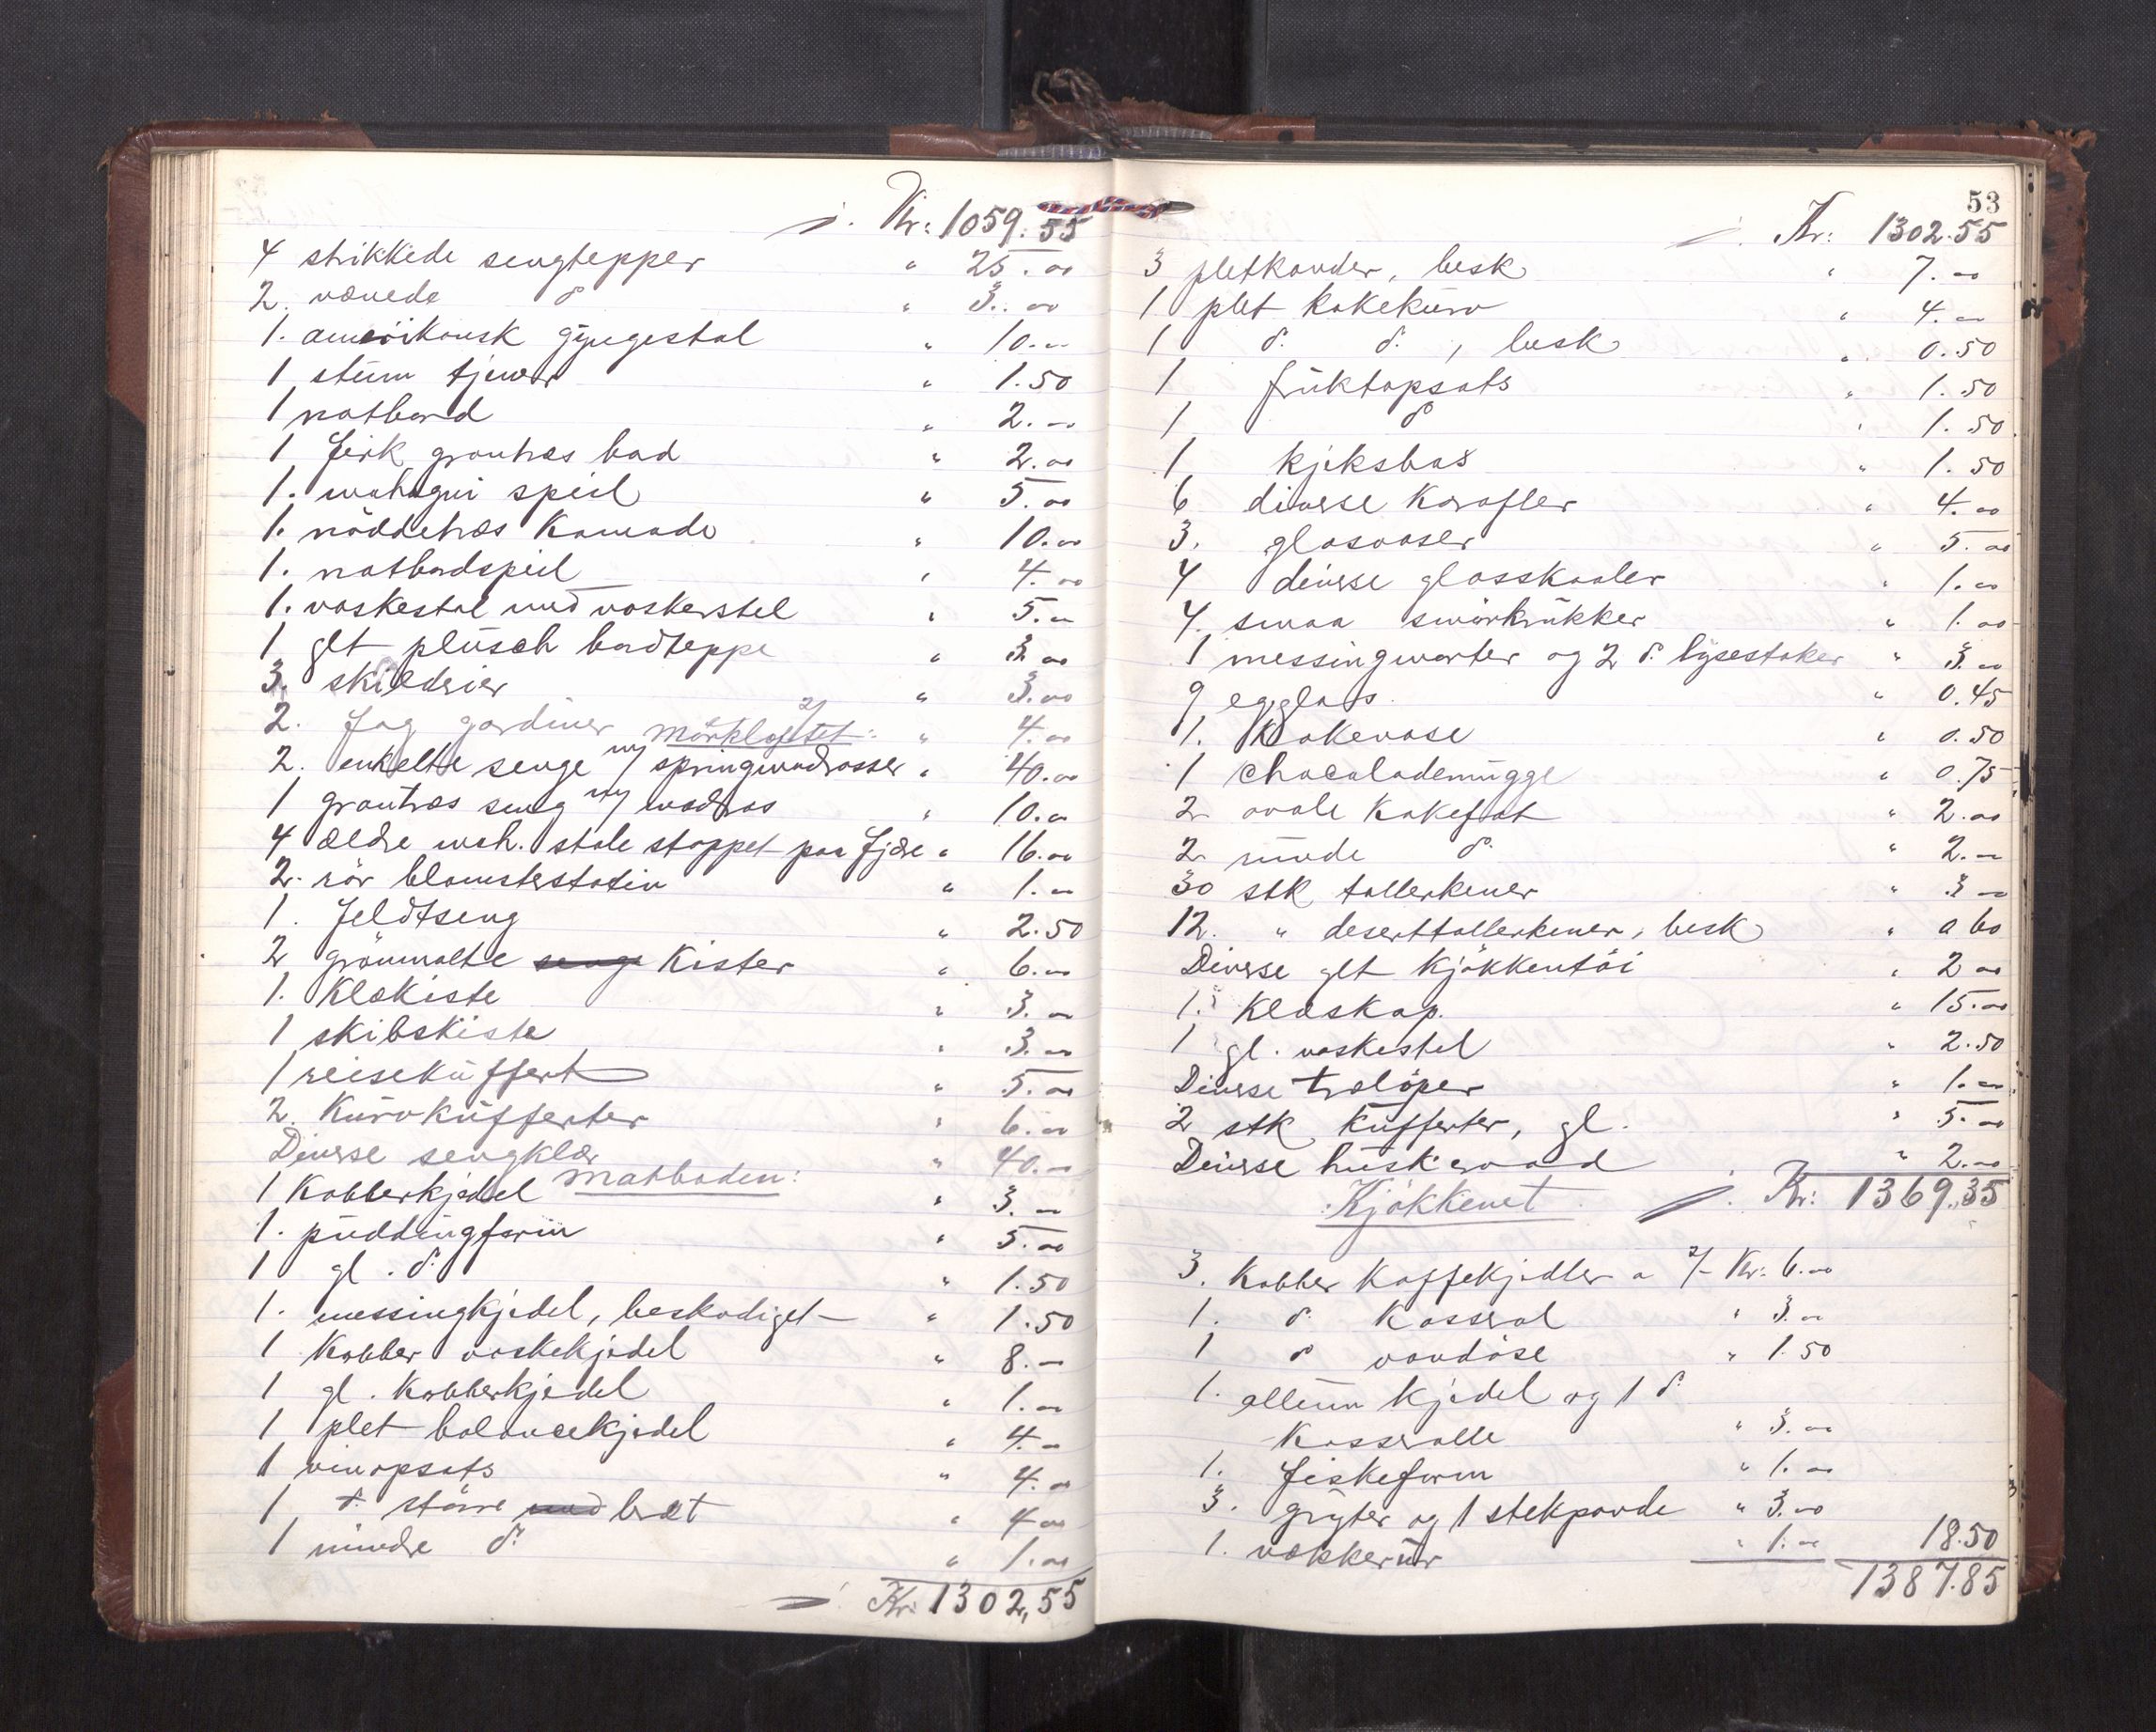 Kr: 1059.55
4 strikkede sengtepper " 25.00
2. vævede do " 3.00
1. amerikansk gyngestol " 10.00
1 stum tjener " 1.50
1 natbord " 2.00
1 firk grantræs bord " 2.00
1. mahogni speil " 5.00
1. nöddetræs Komode " 10.00
1. natbordspeil " 4.00
1. vaskestol med vaskerstel " 5.00
1 glt plüsch bordteppe " 3.00
3. skilderier " 3.00
2. Fag gardiner " 4.00
mörkloftet:
2. enkelte senge m/ springmadrasser " 40.00
1 grantræs seng m/ madras " 10.00
4 ældre mah. stole stoppet paa fjære " 16.00
2. rör blomsterstativ " 1.00
1. Feldtseng " 2.50
2 grönmalte senge Kister " 6.00
1. Klækiste " 3.00
1 skibskiste " 3.00
1 reisekuffert " 5.00
2. Kurvkufferter " 6.00
Diverse sengklær " 40.00
Matboden:
1 Kobberkjedel " 3.00
1. puddingform " 5.00
1 gl. do " 1.50
1. messingkjedel, beskadiget " 1.50
1 Kobber vaskekjedel " 8.00
1 gl. Kobberkjedel " 1.00
1 plet balancekjedel " 4.00
1 vinopsats " 4.00
1 do större med bræt " 4.00
1 mindre do " 1.00
Kr. 1302,55
53
Kr: 1302.55
3 pletkander, besk " 7.00
1 plet kakekurv " 4.00
1 do do, besk " 0.50
1 fruktopsats " 1.50
1 do " 1.50
1 kjeksbox " 1.50
6 diverse Karafler " 4.00
3. glasvaser " 5.00
4 diverse glasskaaler " 1.00
4. smaa smörkrukker " 1.00
1 messingmorter og 2 do lysestaker " 3.00
9 egglas " 0.45
1. Kakevase " 0.50
1 chocolademugge " 0.75
2 ovale Kakefat " 2.00
2 runde do " 2.00
30 stk tallerkener " 3.00
12. " deserttallerkener, besk " 0 60
Diverse glt Kjökkentöi " 2 00
1. Klæskap. " 15.00
1 gl. vaskestel " 2.50
Diverse tralöper " 1.00
2 stk Kufferter, gl. " 5.00
Diverse huskeraad " 2.00
Kr: 1369.35
Kjökkenet
3. Kobber Kaffekjedler a 2/- Kr: 6.00
1. do Kasserol " 3.00
1 do vandöse " 1.50
1. allum kjedel og 1 do
Kasserolle " 3.00
1. fiskeform " 1.00
3. gryter og 1 stekpande " 3.00
1. vækkerur " 1.00 18.50
1387.85